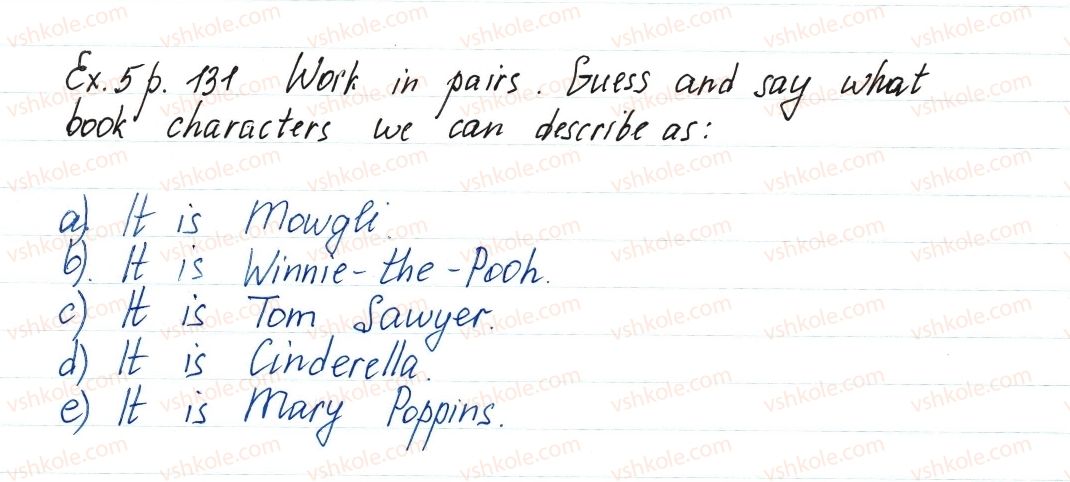 Ex. 5 p. 131 Work in pairs. Guess and say what
book characters we can describe as:
a) It is Mowgli.
b). It is Winnie-the-Pooh.
c) It is Tom Sawyer.
d) It is Cinderella.
e) It is Mary Poppins.